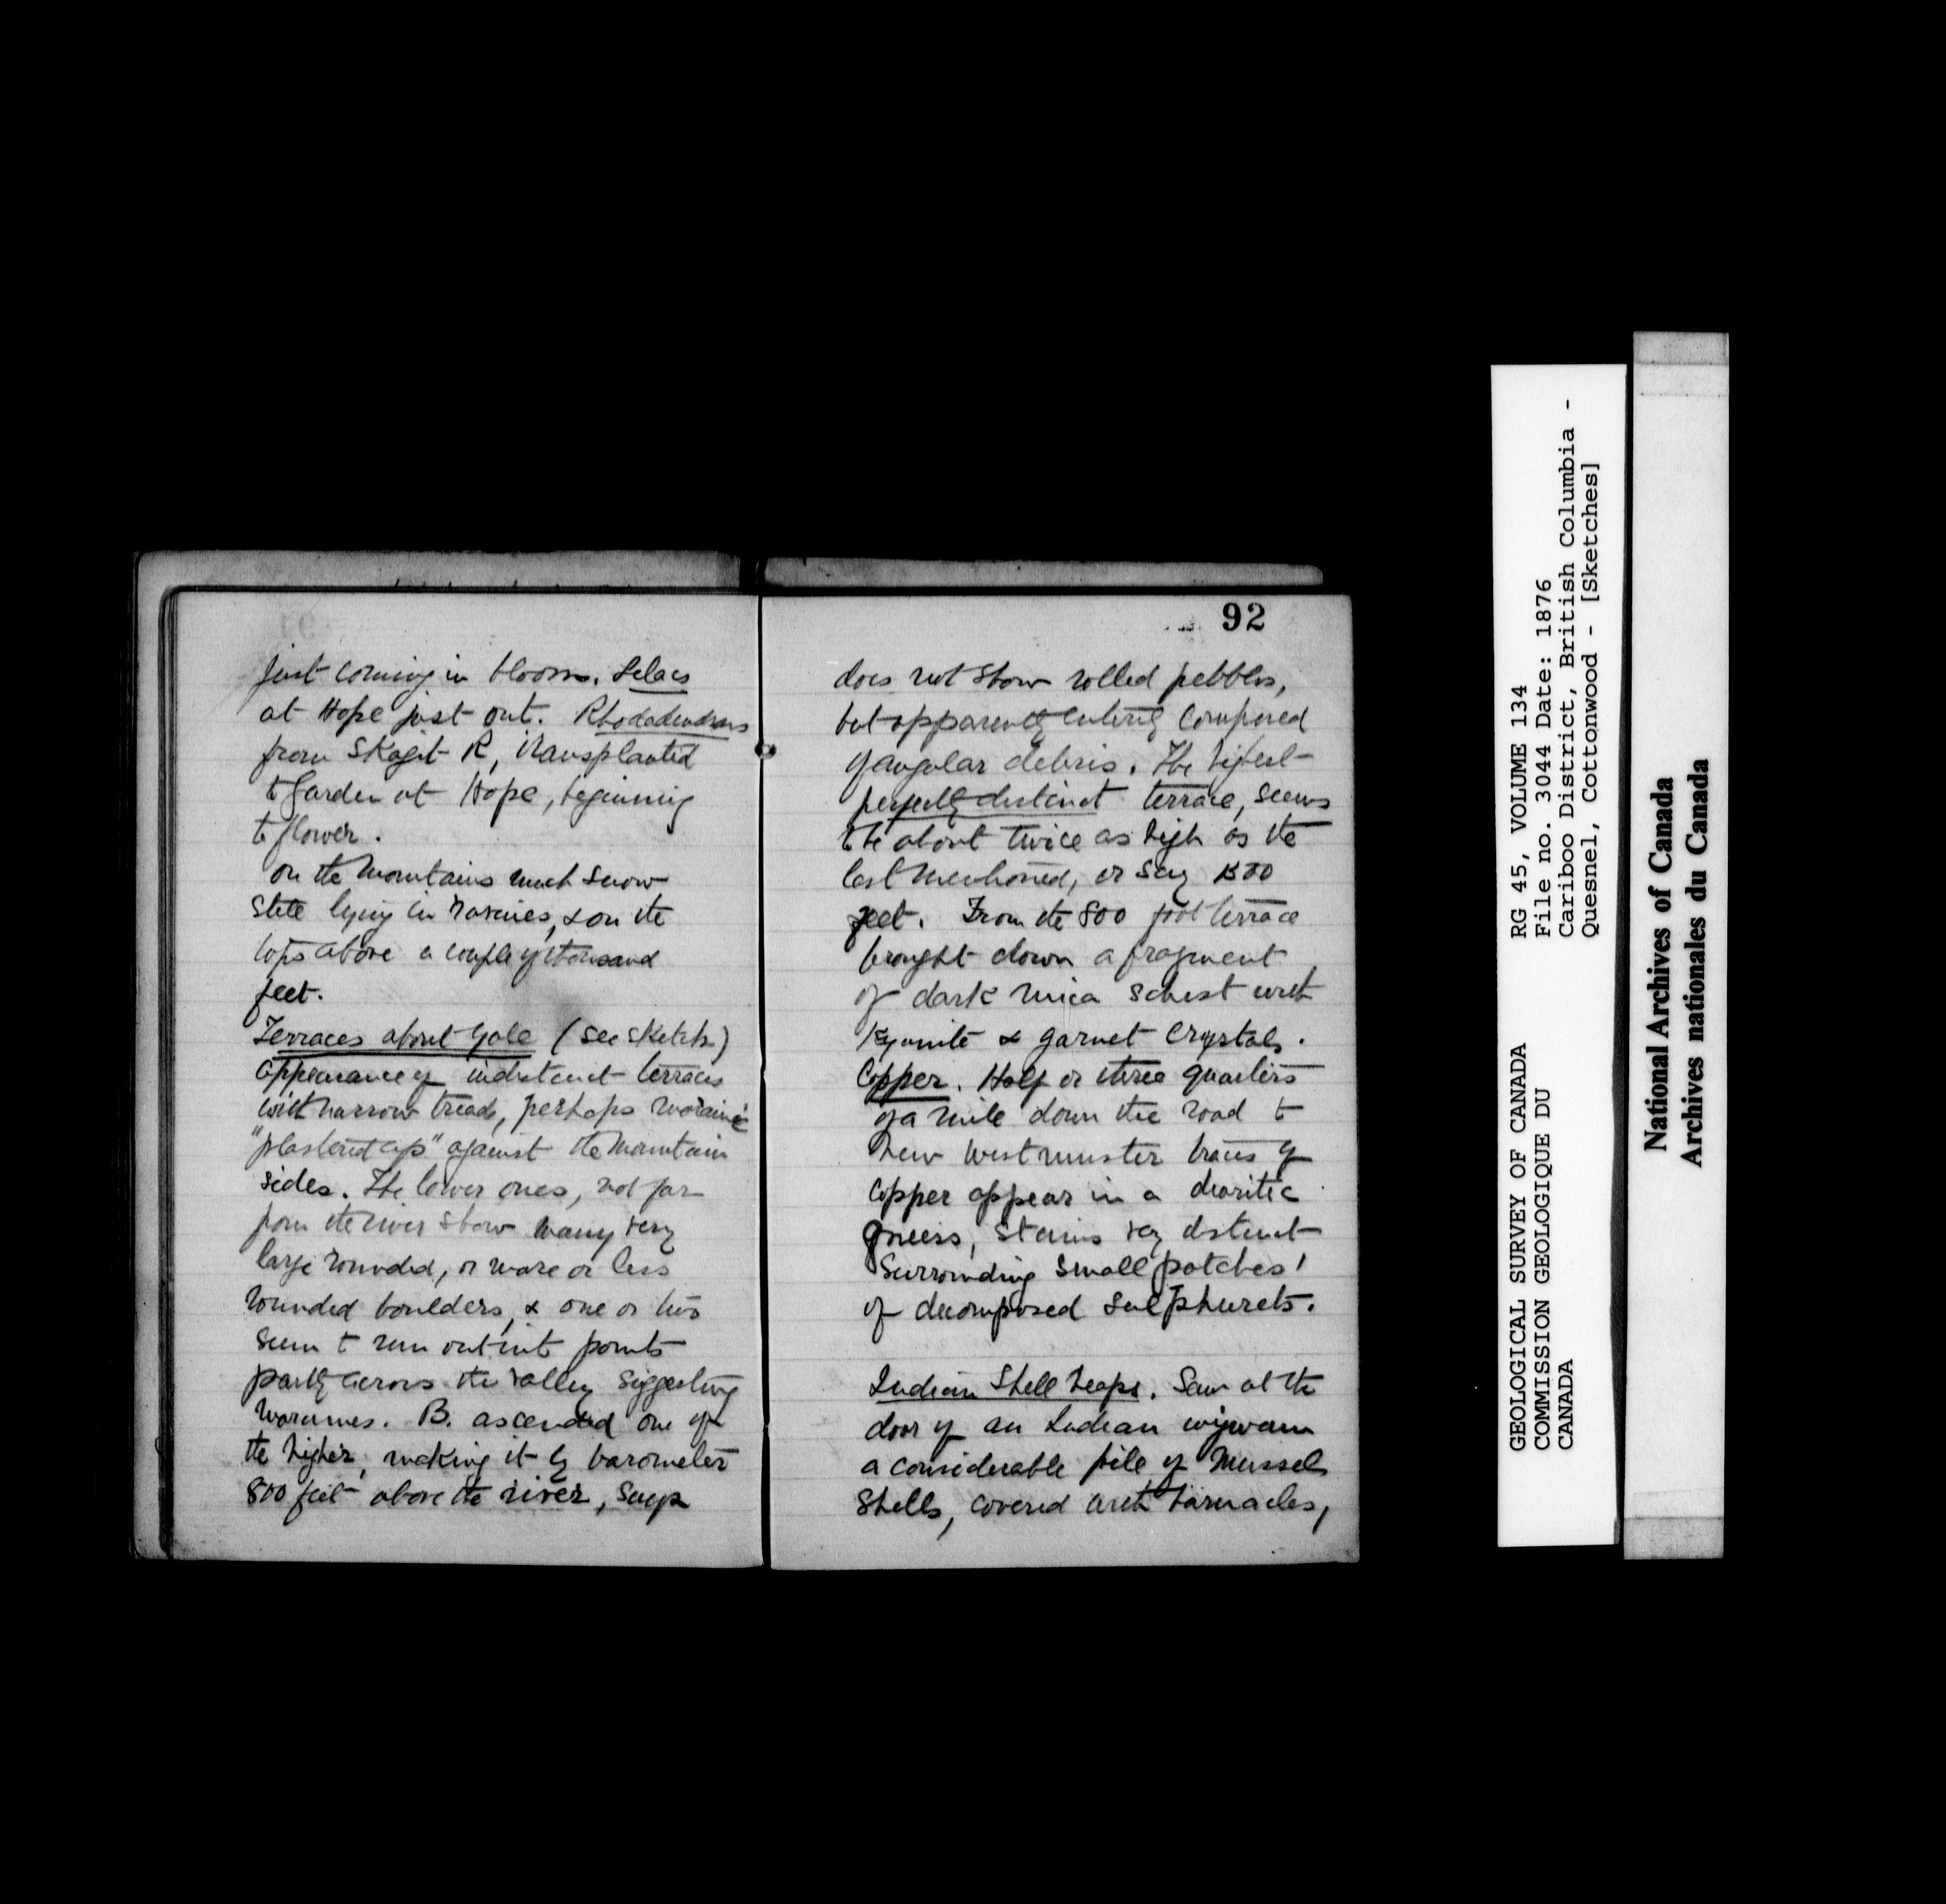 just coming in bloom. Lilacs
at Hope just out. Rhododendrons
from Skagit R, transplanted
to garden at Hope, beginning
to flower.
on the mountains much snow
still lying in ravines, & on the
tops above a couple of thousand
feet.
Terraces about Yale (see sketch)
appearance of indistinct terraces
with narrow treads, perhaps moraines
"plastered up" against the mountain
sides. The lower ones, not far
from the river show many very
large rounded, or more or less
rounded boulders, & one or two
seem to run out into points
partly across the valley suggesting
moraines. B. ascended one of
the higher, making it by barometer
800 feet above the river, says
92
does not show rolled pebbles,
but apparently entirely composed
of angular debris. The highest
perfectly distinct terrace, seems
to be about twice as high as the
last mentioned, or say 1500
feet. From the 800 foot terrace
brought down a fragment
of dark mica schist with
Kyanite & garnet crystals.
Copper. Half or three quarters
of a mile down the road to
New Westminster traces of
copper appear in a dioritic
gneiss, stains very distinct
surrounding small patches
of decomposed sulphurets.
Indian Shell heaps. Saw at the
door of an Indian wigwam
a considerable pile of Mussel
shells, covered with barnacles,
GEOLOGICAL SURVEY OF CANADA
COMMISSION GEOLOGIQUE DU
CANADA
RG 45, VOLUME 134
File no. 3044 Date: 1876
Cariboo District, British Columbia -
Quesnel, Cottonwood - [Sketches]
National Archives of Canada
Archives nationales du Canada